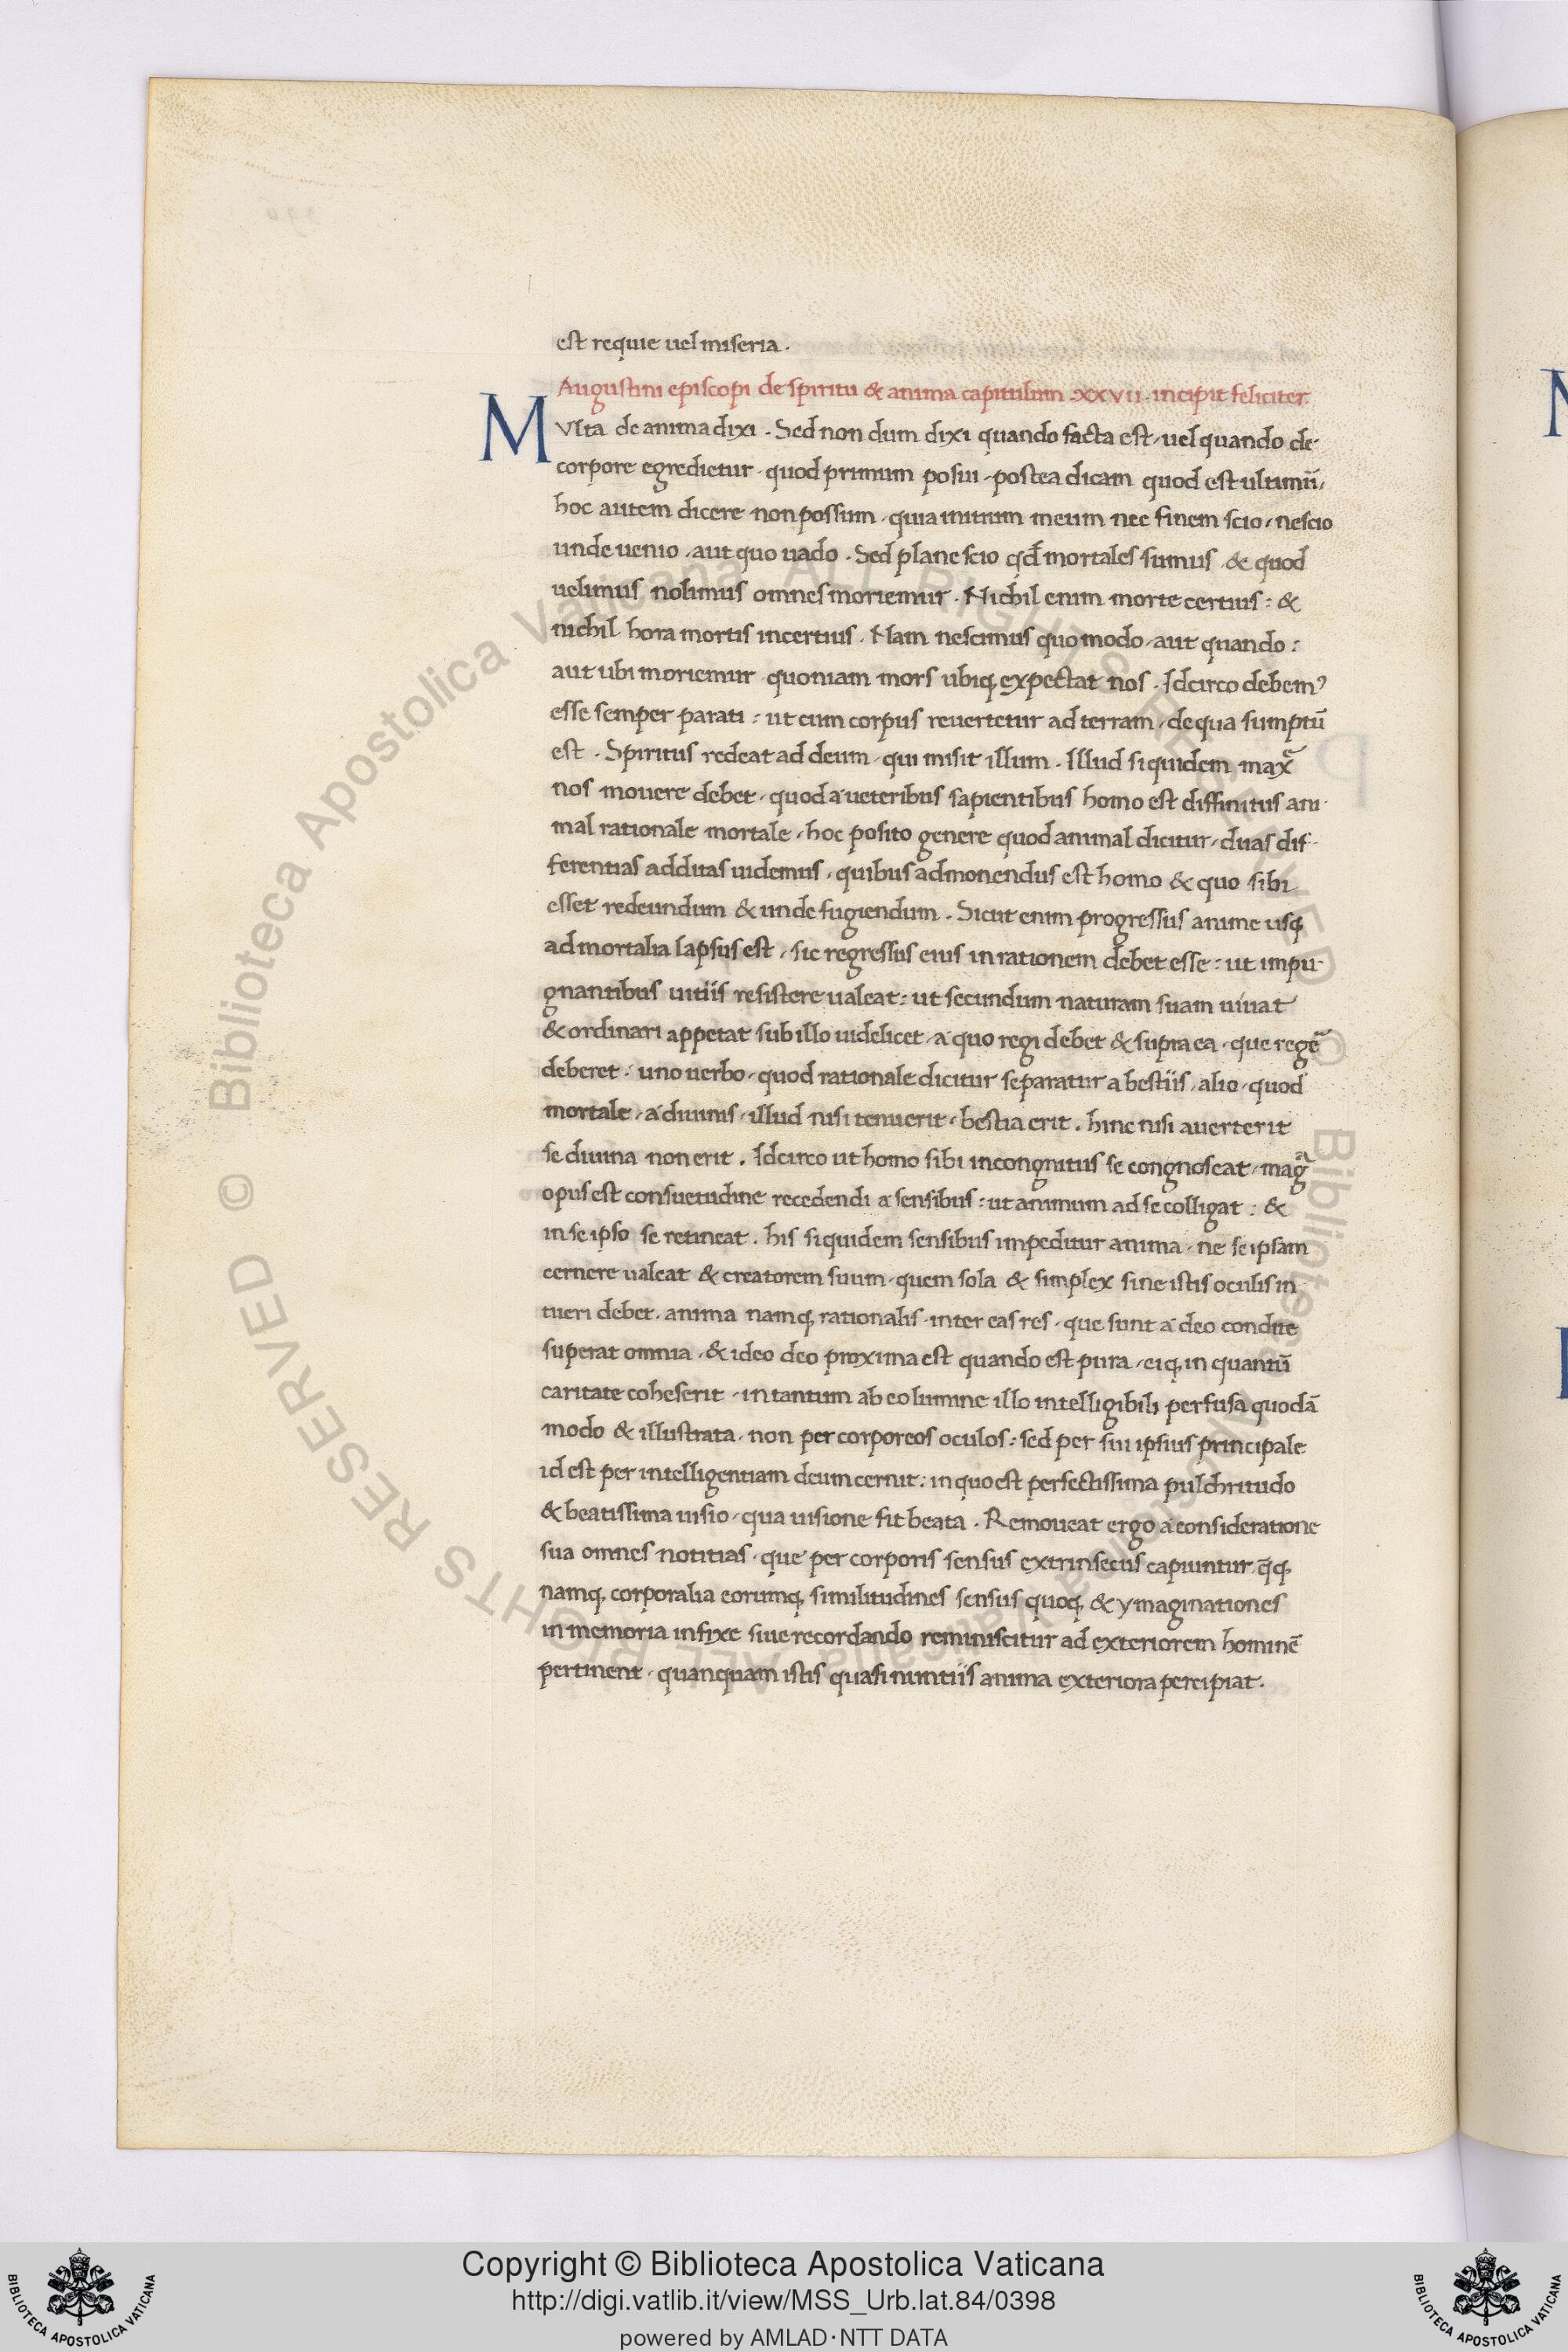 est requie uel miseria.
Augustini episcopi de spiritu & anima capitulum .XXVII. incipit feliciter.
MVlta de anima dixi. Sed non dum dixi quando facta est, uel quando de
corpore egredietur. quod primum posui, postea dicam quod est ultimū,
hoc autem dicere non possum, quia initium meum nec finem scio, nescio
unde uenio, aut quo uado. Sed plane scio qđ mortales sumus, & quod
uelimus nolimus omnes moriemur. Nichil enim morte certius: &
nichil hora mortis incertius. Nam nescimus quo modo, aut quando:
aut ubi moriemur quoniam mors ubiq; expectat nos. Idcirco debem⁹
esse semper parati: ut cum corpus reuertetur ad terram, de qua sumptū
est. Spiritus redeat ad deum, qui misit illum. Illud siquidem max̄
nos mouere debet, quod a ueteribus sapientibus homo est diffinitus ani-
mal rationale mortale, hoc posito genere quod animal dicitur, duas dif-
ferentias additas uidemus, quibus admonendus est homo & quo sibi
esset redeundum & unde fugiendum. Sicut enim progressus anime usq;
ad mortalia lapsus est, sic regressus eius in rationem debet esse: ut impu-
gnantibus uitiis resistere ualeat: ut secundum naturam suam uiuat
& ordinari appetat sub illo uidelicet, a quo regi debet & supra ea, que regē
deberet: uno uerbo, quod rationale dicitur separatur a bestiis, alio, quod
mortale, a diuinis, illud nisi tenuerit, bestia erit. hinc nisi auerterit
se diuina non erit. Idcirco ut homo sibi incongnitus se congnoscat, mag̃
opus est consuetudine recedendi a sensibus: ut animum ad se colligat: &
in se ipso se retineat. his siquidem sensibus impeditur anima, ne se ipsam
cernere ualeat & creatorem suum, quem sola & simplex sine istis oculis in
tueri debet. anima namq; rationalis, inter eas res, que sunt a deo condite
superat omnia, & ideo deo proxima est quando est pura, eiq; in quantū
caritate coheserit, in tantum ab eo lumine illo intelligibili perfusa quodā
modo & illustrata, non per corporeos oculos: sed per sui ipsius principale
id est per intelligentiam deum cernit: in quo est perfectissima pulchritudo
& beatissima uisio, qua uisione fit beata. Remoueat ergo a consideratione
sua omnes notitias, que per corporis sensus extrinsecus capiuntur,
namq; corporalia eorumq; similitudines sensus quoq; & ymaginationes
in memoria infixe siue recordando reminiscitur ad exteriorem hominē
pertinent, quanquam istis quasi nuntiis anima exteriora percipiat.
© Biblioteca Apostolica Vaticana ALL RIGHTS RESERVED
© Biblioteca Apostolica Vaticana ALL RIGHTS RESERVED
Copyright © Biblioteca Apostolica Vaticana
http://digi.vatlib.it/view/MSS_Urb.lat.84/0398
powered by AMLAD·NTT DATA
BIBLIOTECA APOSTOLICA VATICANA
BIBLIOTECA APOSTOLICA VATICANA